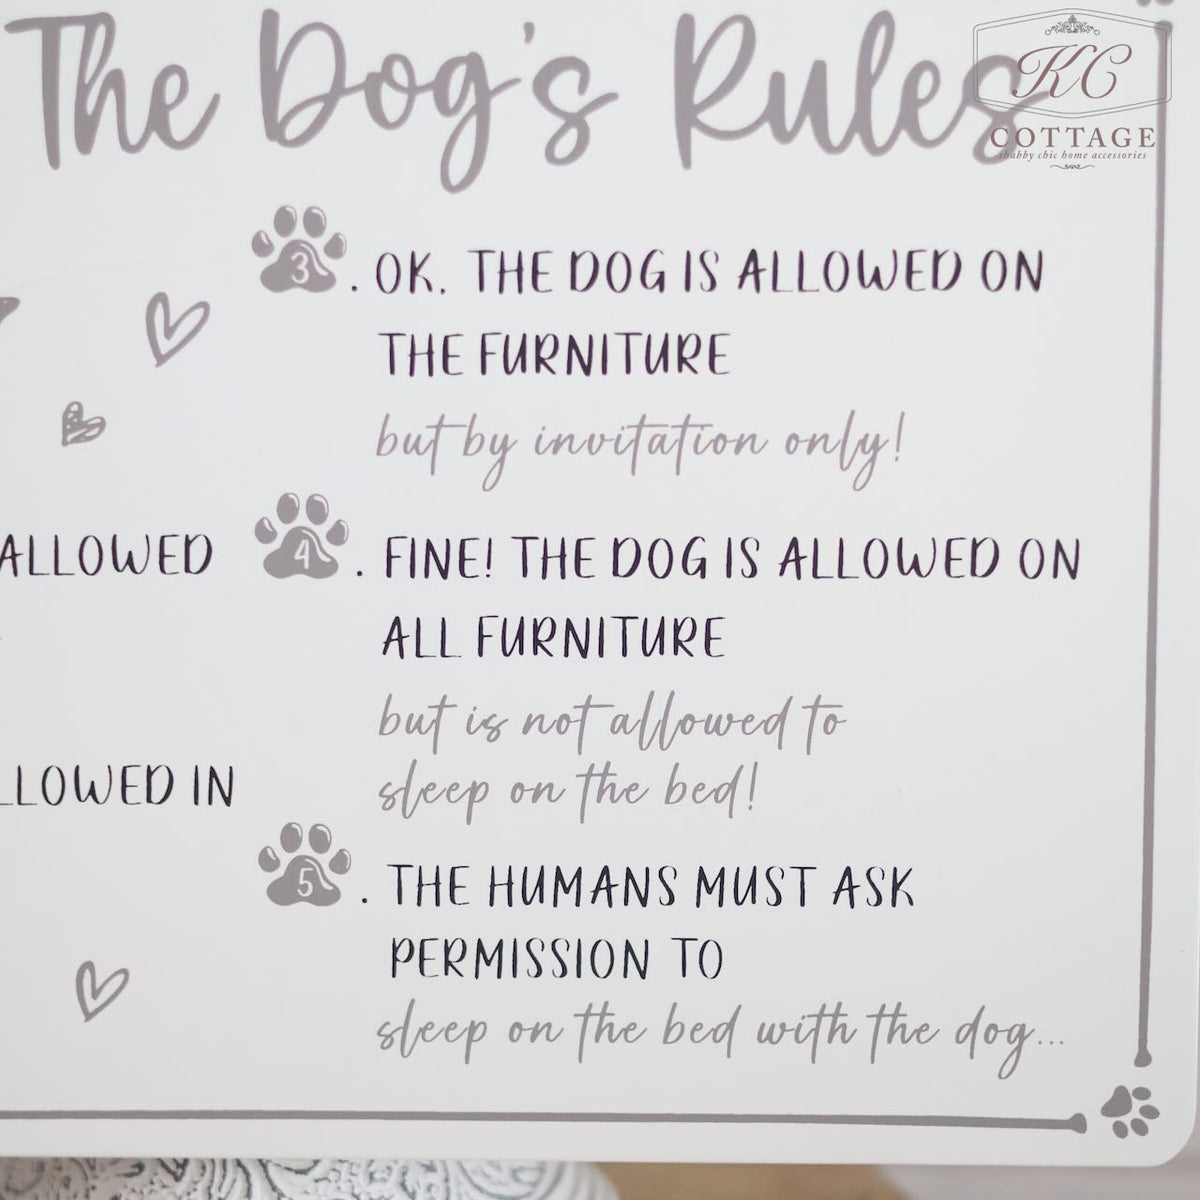 The Dog's Rules
KC
COTTAGE
shabby chic home accessories
ALLOWED
LLOWED IN
3. OK. THE DOG IS ALLOWED ON
THE FURNITURE
but by invitation only!
4. FINE! THE DOG IS ALLOWED ON
ALL FURNITURE
but is not allowed to
sleep on the bed!
5. THE HUMANS MUST ASK
PERMISSION TO
sleep on the bed with the dog...